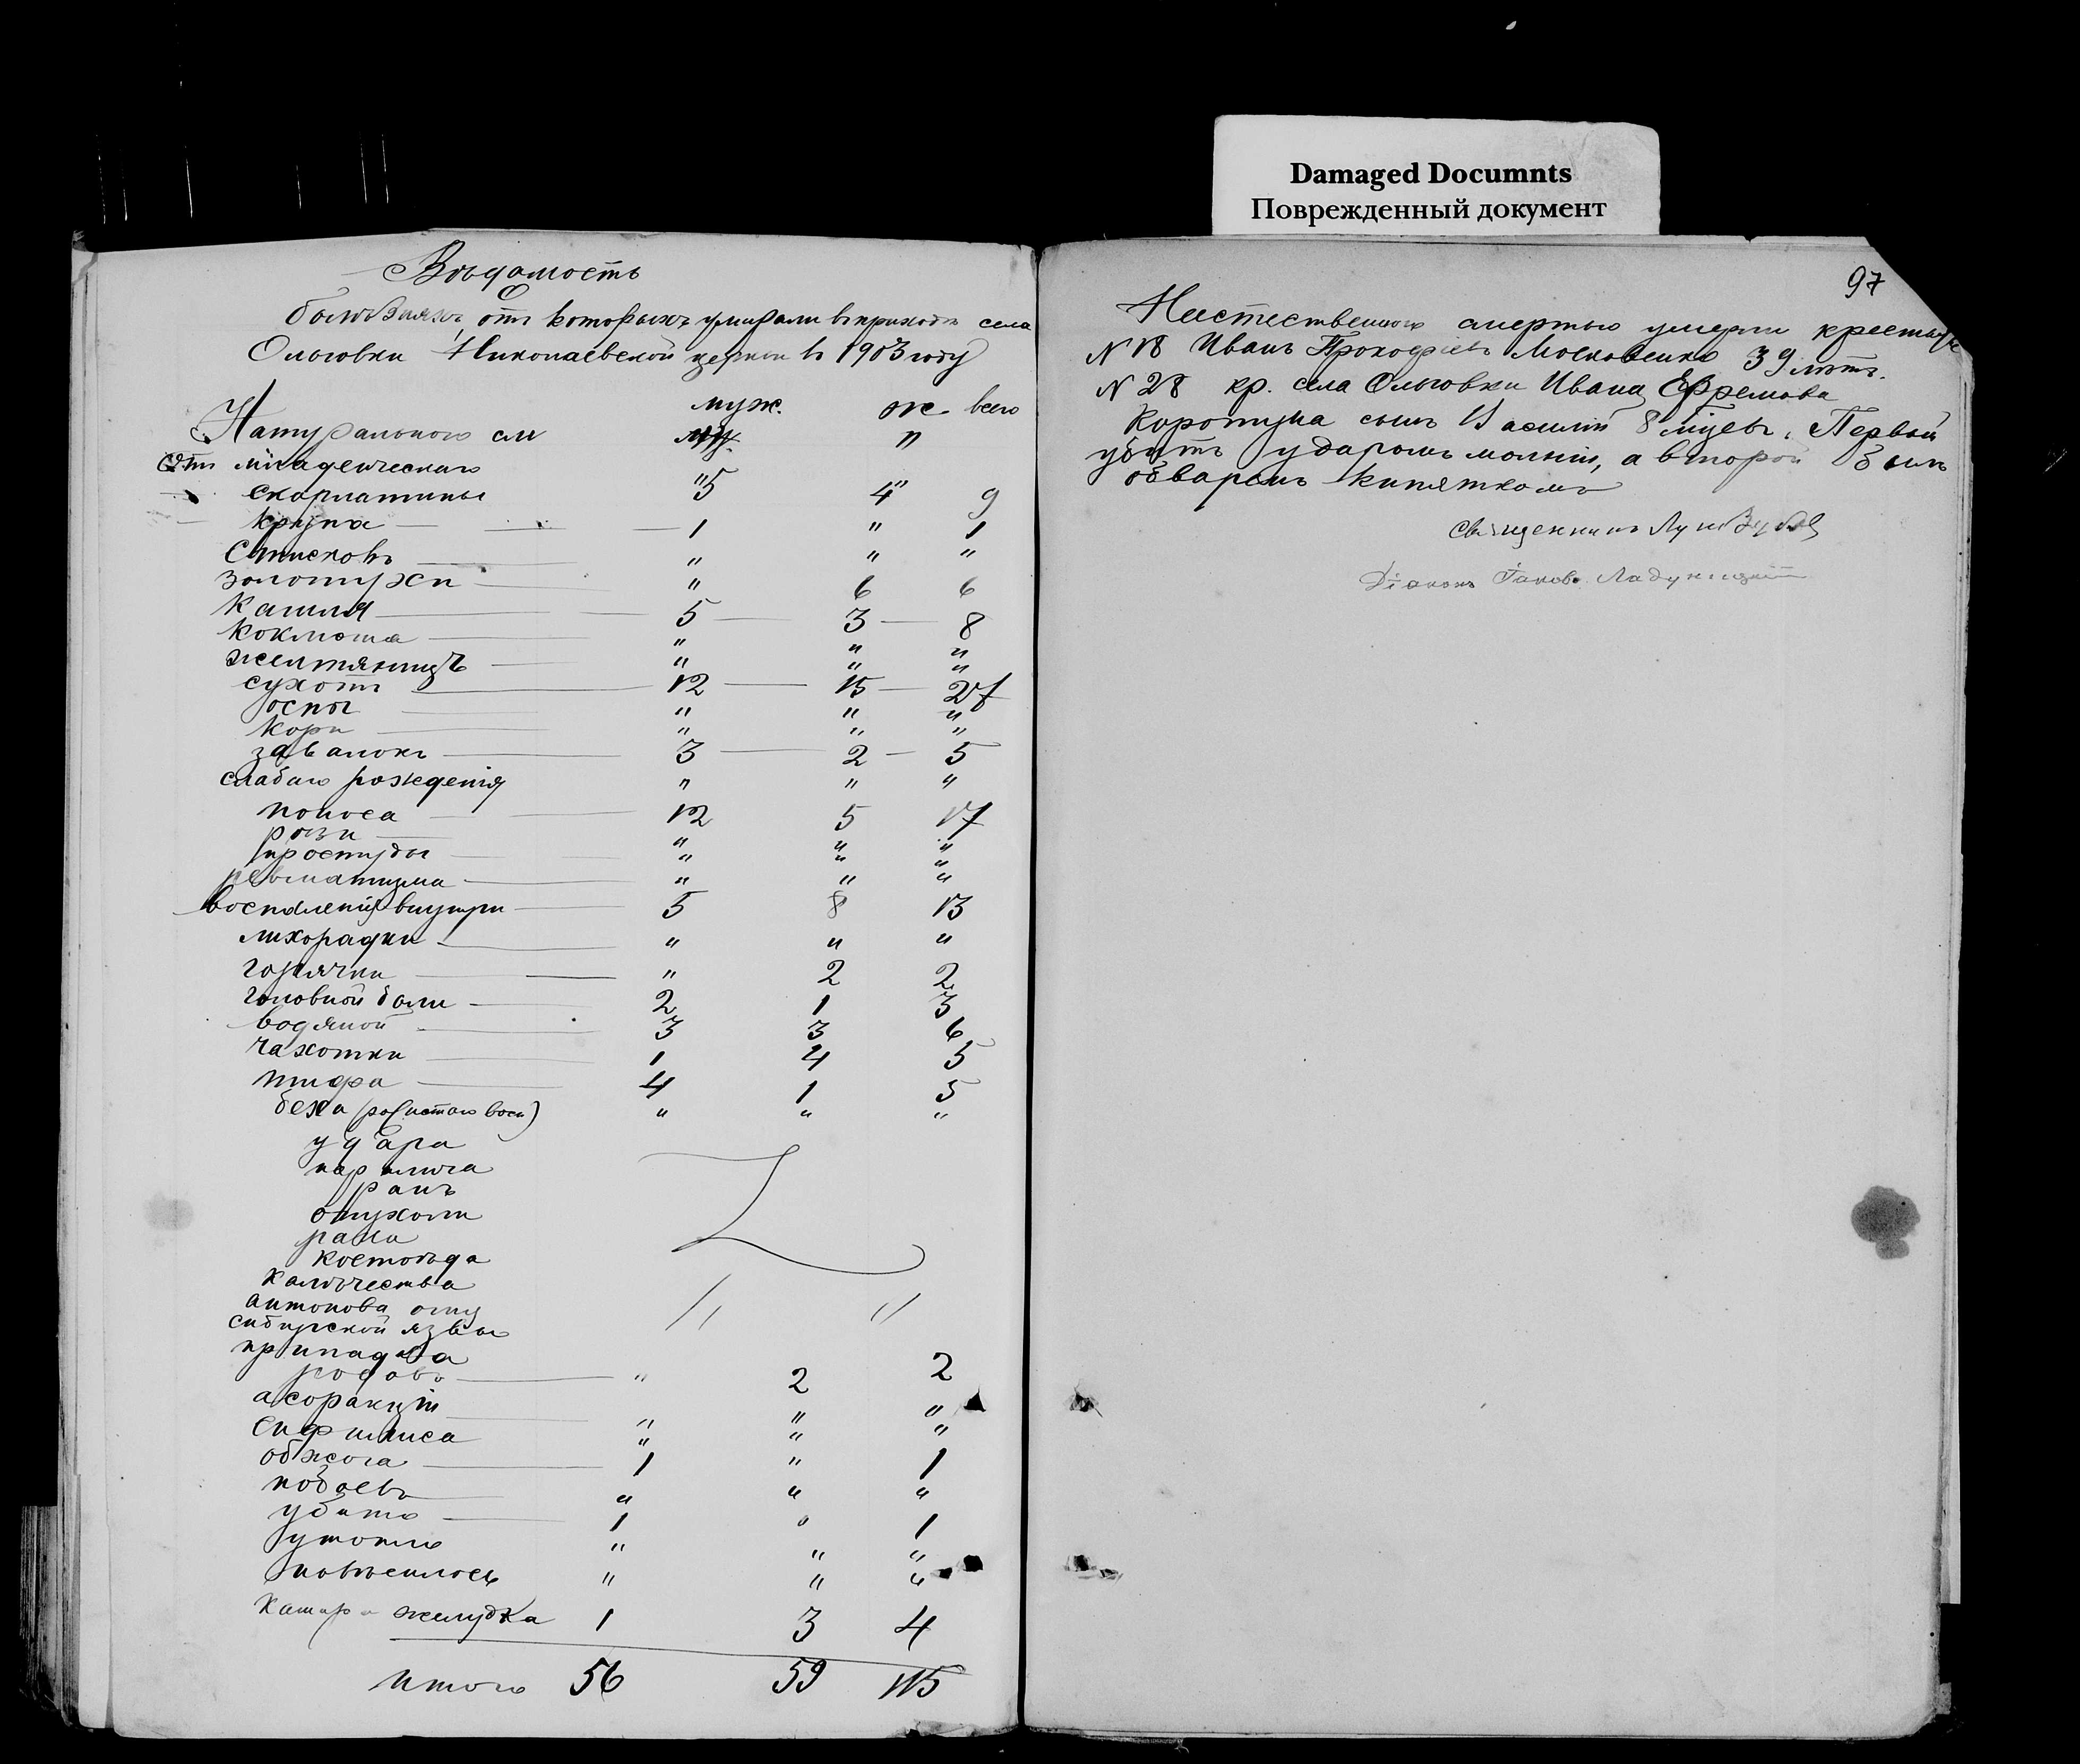 Damaged Documnts
Поврежденный документ
Вѣдомость
болѣзнямъ, отъ которыхъ умирали въ приходѣ села
Ольговки Николаевской церкви въ 1903 году
муж. же. всего
Натуральною см "
Отъ младенческаго
скарлатины "5 4" 9
крупа 1 " 1
Стисковъ " " "
золотухи " 6 6
Кашля 5 3 8
коклюша " " "
желтяницъ " " "
сухотъ 12 15 27
оспы " " "
кори " " "
завалокъ 3 2 5
слабаго рожденія " " "
поноса 12 5 17
рожи " " "
простуды " " "
ревматизма " " "
воспаленія внутри 5 8 13
лихорадки " " "
горячки " 2 2
головной боли 2 1 3
водяной 3 3 6
чахотки 1 4 5
тифа 4 1 5
" " "
удара
паралича
ракъ
опухоли
рани
костоѣда
калѣчества
антонова огн
сибирской язвы
припадка
родовъ " 2 2
" " "
сифилиса " " "
обжога 1 " 1
побоевъ " " "
убито 1 " 1
утопло " " "
повѣсилось " " "
Катара желудка 1 3 4
Итого 56 59 115
97
Неестественною смертью умерли крестьяне
N 18 Иванъ Прокофіевъ Московенко 39 лѣтъ.
N 28 кр. села Ольговки Ивана Ефремова
Коротуна сынъ Василій 8 мѣсяцевъ. Первый
убитъ ударомъ молніи, а второй былъ
обваренъ кипяткомъ
Священникъ Лука Зубовъ
Діаконъ Іаковъ